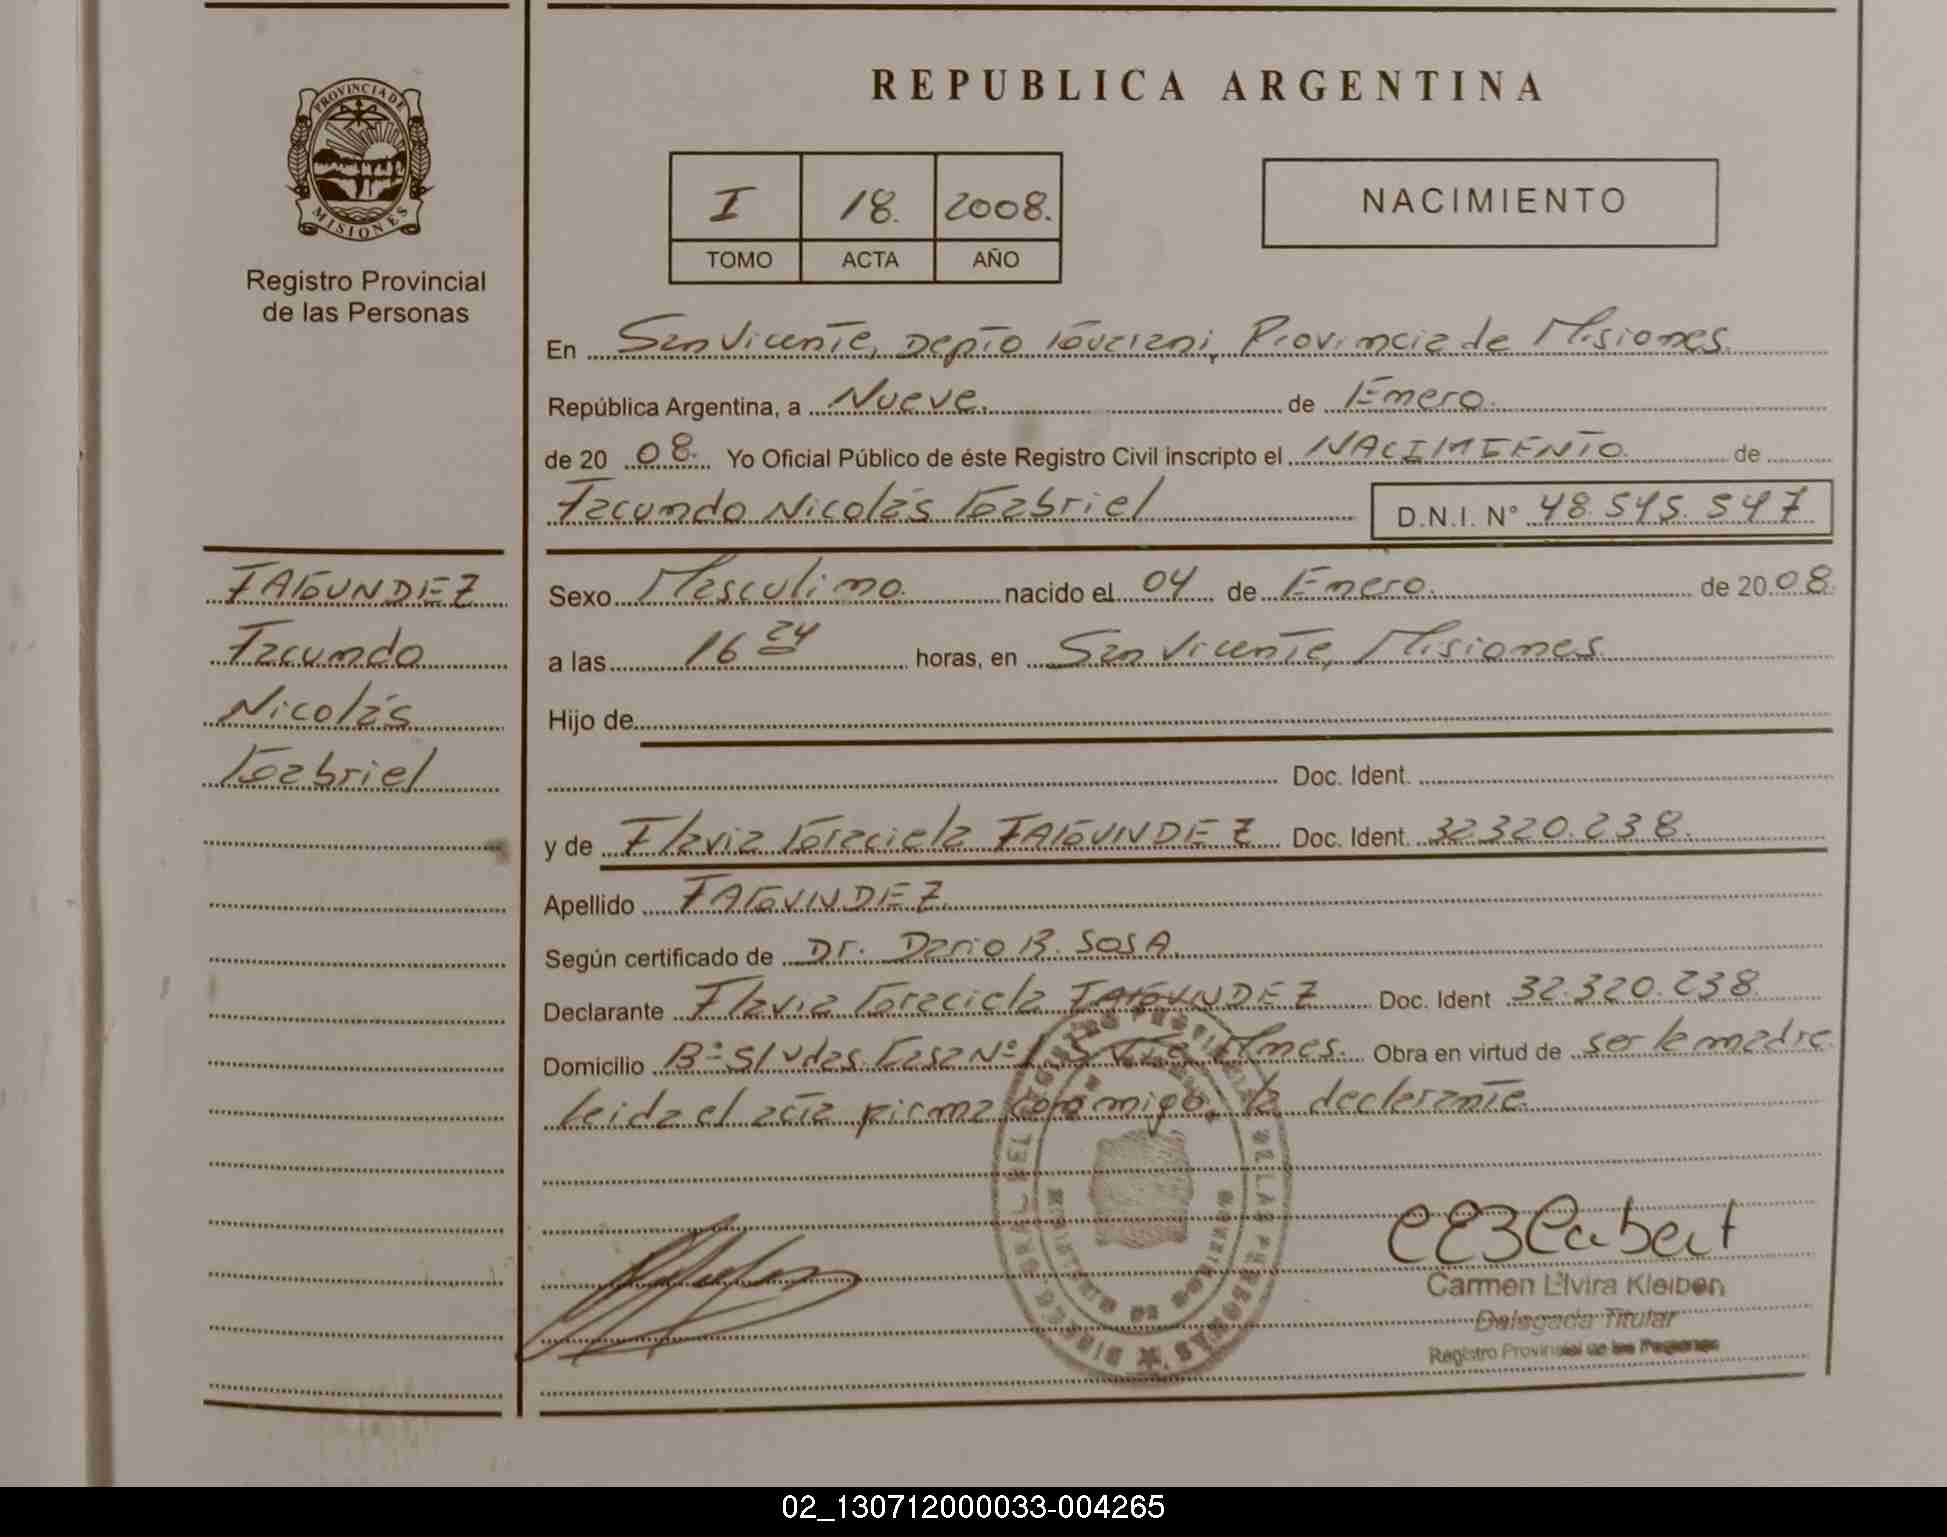 PROVINCIA DE
MISIONES
Registro Provincial
de las Personas
REPUBLICA ARGENTINA
I 18. 2008.
TOMO ACTA AÑO
NACIMIENTO
En San Vicente, Depto Guarani, Provincia de Misiones
República Argentina, a Nueve. de Enero.
de 20 08. Yo Oficial Público de éste Registro Civil inscripto el NACIMIENTO de
Facundo Nicolás Gabriel D.N.I. N° 48.545.547
FAGUNDEZ
Facundo
Nicolás
Gabriel
Sexo Masculino. nacido el 04 de Enero. de 20 08.
a las 16 24 horas, en San Vicente, Misiones.
Hijo de
Doc. Ident.
y de Flavia Graciela FAGUNDEZ Doc. Ident. 32.320.238.
Apellido FAGUNDEZ
Según certificado de Dr. Dario R. SOSA.
Declarante Flavia Graciela FAGUNDEZ Doc. Ident 32.320.238
Domicilio B° Casa N° Obra en virtud de ser la madre
Leida el acta firma conmigo, la declarante
Carmen Elvira Kleiben
Delegada Titular
Registro Provincial de las Personas
02_130712000033-004265